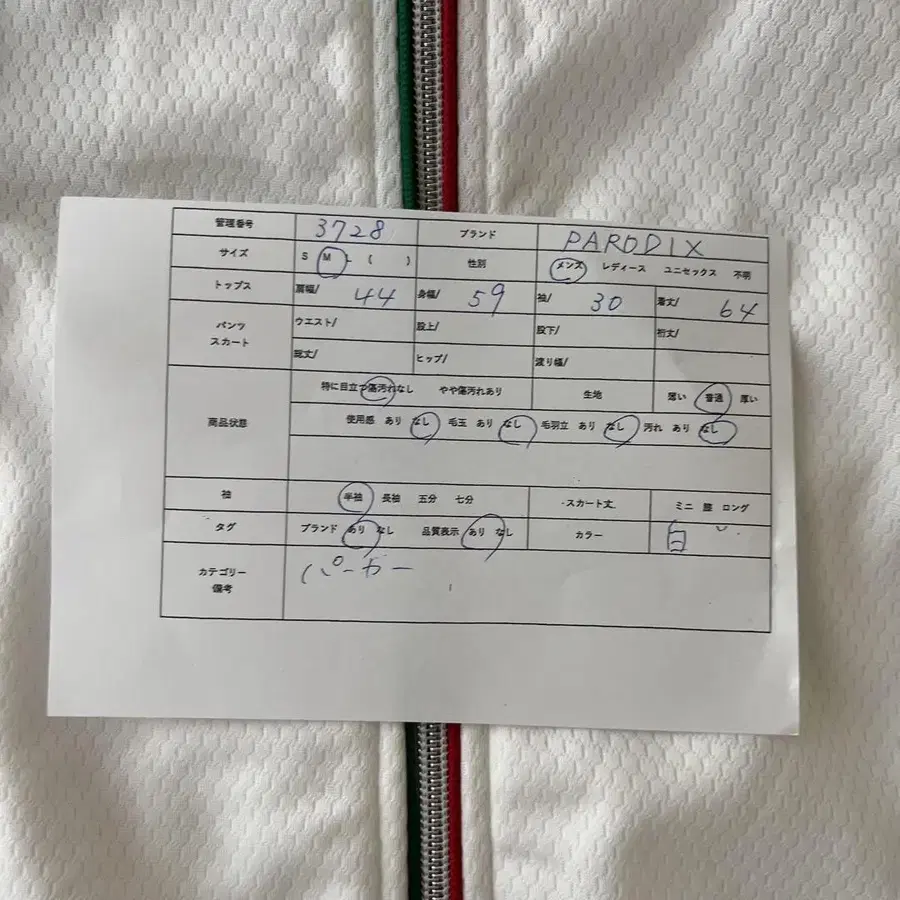 管理番号 3728 ブランド PARODIX
サイズ S M L ( ) 性別 メンズ レディース ユニセックス 不明
トップス 肩幅/ 44 身幅/ 59 袖/ 30 着丈/ 64
パンツ スカート ウエスト/ 股上/ 股下/ 裄丈/
総丈/ ヒップ/ 渡り幅/
商品状態 特に目立つ傷汚れなし やや傷汚れあり 生地 薄い 普通 厚い
使用感 あり なし 毛玉 あり なし 毛羽立 あり なし 汚れ あり なし
袖 半袖 長袖 五分 七分 スカート丈 ミニ 膝 ロング
タグ ブランド あり なし 品質表示 あり なし カラー 白
カテゴリー 備考 パーカー